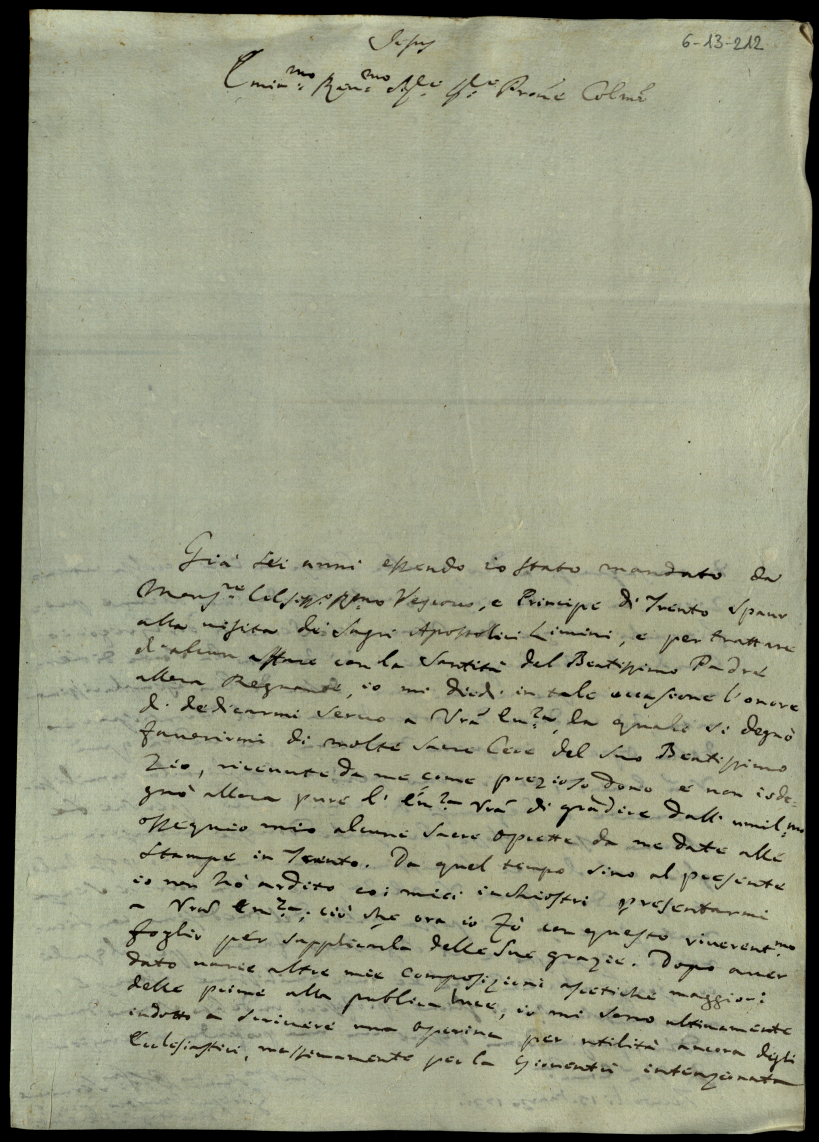 6-13-212
Jesus
Emin.mo Rev.mo Sig.re Sig.re Prone Colmo
Già sei anni essendo io stato mandato da
Monsig.re Celsissimo Vescovo, e Principe di Trento Spaur
alla visita dei Sagri Apostolici Limini, e per trattare
d'alcun affare con la Santità del Beatissimo Padre
allora Regnante, io mi diedi in tale occasione l'onore
di dedicarmi servo a Vrã Em.za, la quale si degnò
favorirmi di molte sacre Cere del suo Beatissimo
Zio, ricevute da me come prezioso dono e non isde-
gnò allora pure l'Em.za Vrã di gradire dall'umil.mo
ossequio mio alcune sacre operette da me date alle
Stampe in Trento. Da quel tempo sino al presente
io non hò ardito coi miei inchiostri presentarmi
a Vrã Em.za, ciò che ora io fò con questo riverent.mo
foglio per supplicarla delle sue grazie. Dopo aver
dato varie altre mie composizioni ascetiche maggiori
delle prime alla publica luce, io mi sono ultimamente
indotto a scrivere una operina per utilità ancora degli
Ecclesiastici, massimamente per la Gioventù intenzionata